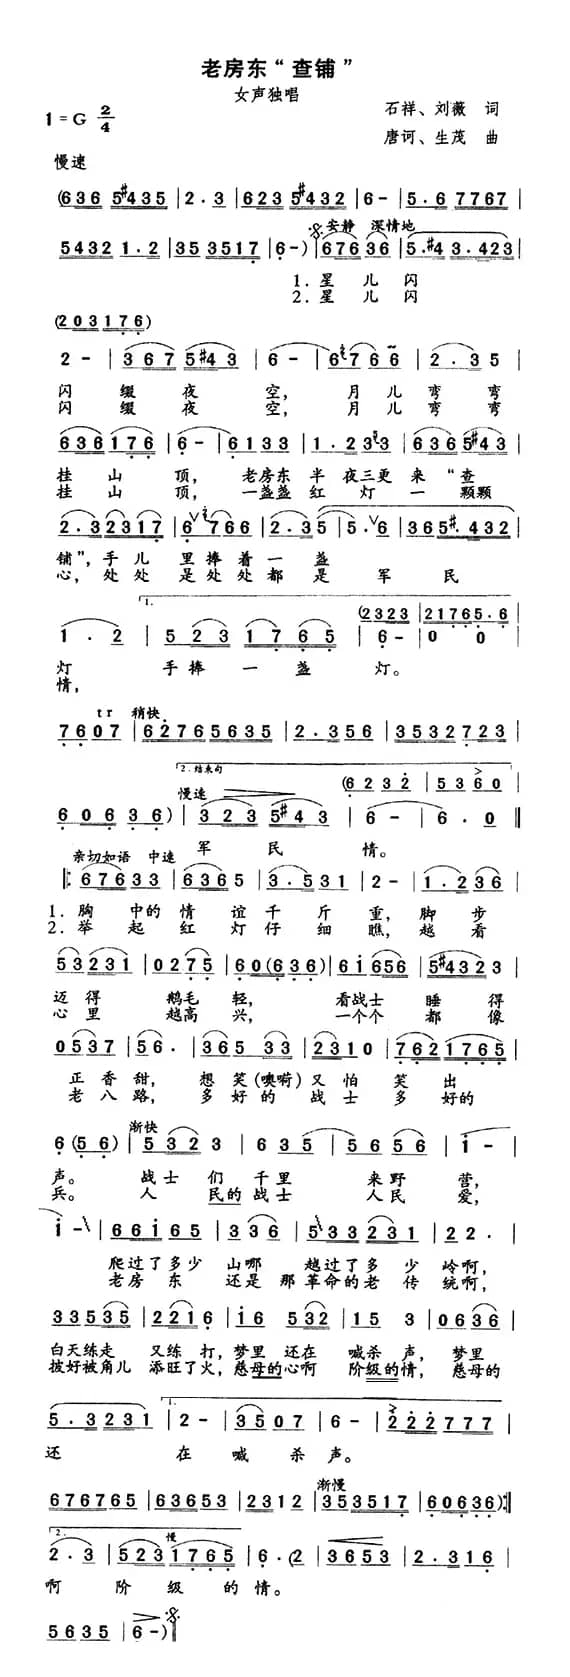 老房东“查铺”
女声独唱
1=G 2/4
石祥、刘薇 词
唐诃、生茂 曲
慢速
(636 5#435 | 2·3 | 623 5#432 | 6- | 5·6 7767 |
5432 1·2 | 353 3517 | 6-) | 67636 | 5·#4 3·423 |
安静 深情地
1.星儿闪
2.星儿闪
(203176)
2- | 367 5#43 | 6- | 6766 | 2·35 |
闪缀夜空，月儿弯弯
闪缀夜空，月儿弯弯
636176 | 6- | 6133 | 1·233 | 6365#43 |
挂山顶，老房东半夜三更来“查
挂山顶，一盏盏红灯一颗颗
2·32317 | 6766 | 2·35 | 5·6 | 365#432 |
铺”，手儿里捧着一盏
心，处处是处处都是军民
1.
(2323 | 21765·6
1·2 | 523 1765 | 6- | 0 0 |
灯 手捧一盏灯。
情，
tr 稍快
7607 | 62765635 | 2·356 | 3532723 |
2.结束句
慢速
(6232 | 5360)
60636) | 323 5#43 | 6- | 6·0 ‖
军民情。
亲切如语 中速
‖: 67633 | 6365 | 3·531 | 2- | 1·236 |
1.胸中的情谊千斤重，脚步
2.举起红灯仔细瞧，越看
53231 | 0275 | 60(636) | 61656 | 5#4323 |
迈得鹅毛轻，看战士睡得
心里越高兴，一个个都像
0537 | 56· | 365 33 | 2310 | 7621765 |
正香甜，想笑(噢嗬)又怕笑出
老八路，多好的战士多好的
渐快
6(56) | 5323 | 635 | 5656 | i- |
声。战士们千里来野营，
兵。人民的战士人民爱，
i- | 66i65 | 336 | 533231 | 22· |
爬过了多少山哪越过了多少岭啊，
老房东还是那革命的老传统啊，
33535 | 2216 | i6 532 | 15 3 | 0636 |
白天练走又练打，梦里还在喊杀声，梦里
披好被角儿添旺了火，慈母的心啊阶级的情，慈母的
1.
5·3231 | 2- | 3507 | 6- | 222777 |
还在喊杀声。
渐慢
676765 | 63653 | 2312 | 353517 | 60636) :‖
2.
慢
2·3 | 5231765 | 6·(2 | 3653 | 2·316 |
啊阶级的情。
5635 | 6-) ‖